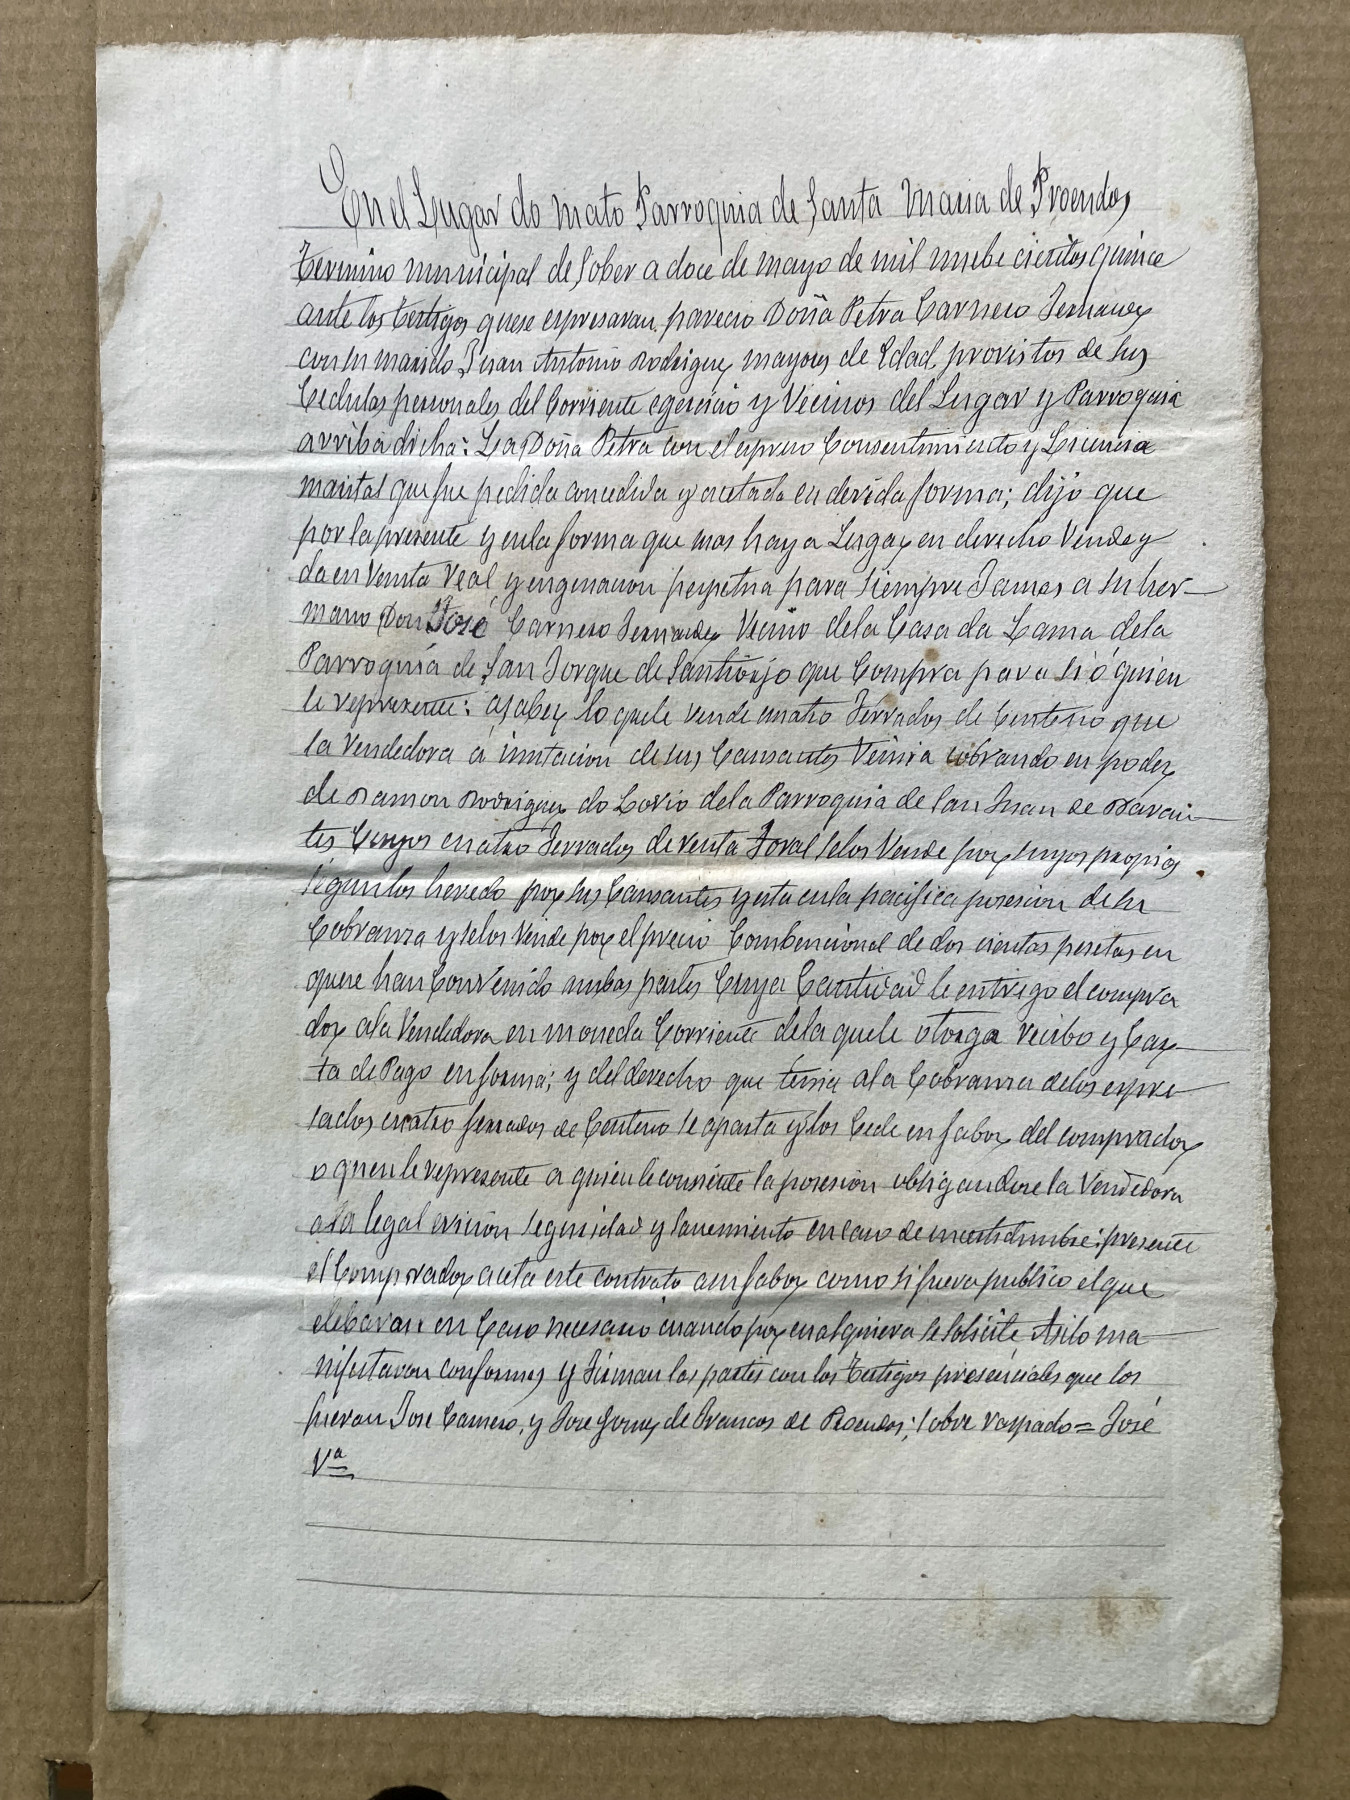 En el Lugar do mato Parroquia de Santa Maria de Proendos
Termino municipal de Sober a doce de mayo de mil nuebe cientos quince
ante los testigos quese espresaran parecio Doña Petra Carnero Fernandez
con su marido Juan Antonio Rodriguez mayores de Edad provistos de sus
Cedulas personales del Corriente egercicio y Vecinos del Lugar y Parroquia
arriba dicha: La Doña Petra con el espreso Consentimiento y Licencia
marital que fue pedida concedida y acetada en devida forma; dijo que
por la presente y en la forma que mas haya Lugar en derecho Vende y
da en Venta real, y engenacion perpetua para siempre Jamas a su her-
mano Don José Carnero Fernandez Vecino dela Casa da Lama dela
Parroquia de San Jorgue de Santiorjo que Compra para si ó quien
le represente: asaber lo quele vende cuatro Ferrados de Centeno que
la Vendedora á imitacion de sus Causantes Venia cobrando en poder
de Ramon Rodriguez do Lovio dela Parroquia de San Juan de
tes Cuyos cuatro Ferrados de renta Foral selos Vende por suyos propios
segun los heredo por sus Causantes y esta en la pacifica posesion de su
Cobranza y selos Vende por el precio Combencional de dos cientas pesetas en
quese han Convenido ambas partes Cuya Cantidad le entrego el compra
dor ala Vendedora en moneda Corriente dela quele otorga recibo y Car-
ta de Pago en forma; y del derecho que tenia ala Cobranza delos espre-
sados cuatro ferrados de Centeno se aparta y los Cede en fabor del comprador
o quien le represente a quien le consiente la posesion obligandose la Vendedora
ala legal evicion seguridad y saneamiento en caso de incertidumbre: presente
el Comprador aceta este contrato asu fabor como si fuera publico el que
elebaran en Caso necesario cuando por cualquiera se solicite Asilo ma-
nifestaron conformes y Firman las partes con los Testigos presenciales que los
fueran Jose Carnero, y Jose Gomez de Francos de Proendos; sobre raspado = José
Vª